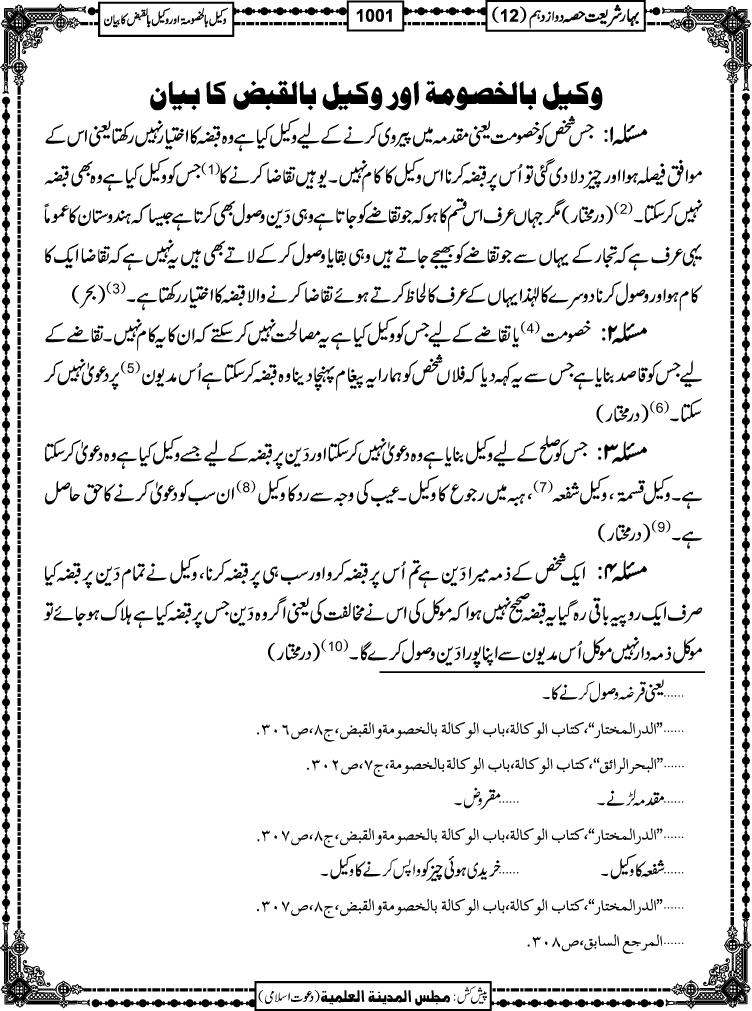 بہار شریعت حصہ دوازدہم (12)
1001
وکیل بالخصومۃ اور وکیل بالقبض کا بیان
وکیل بالخصومة اور وکیل بالقبض کا بیان
مسئلہ ۱: جس شخص کو خصومت یعنی مقدمہ میں پیروی کرنے کے لیے وکیل کیا ہے وہ قبضہ کا اختیار نہیں رکھتا یعنی اس کے
موافق فیصلہ ہوا اور چیز دلا دی گئی تو اُس پر قبضہ کرنا اس وکیل کا کام نہیں۔ یوہیں تقاضا کرنے کا(1) جس کو وکیل کیا ہے وہ بھی قبضہ
نہیں کرسکتا۔(2) (درمختار) مگر جہاں عرف اس قسم کا ہو کہ جو تقاضے کو جاتا ہے وہی دَین وصول بھی کرتا ہے جیسا کہ ہندوستان کا عموماً
یہی عرف ہے کہ تجار کے یہاں سے جو تقاضے کو بھیجے جاتے ہیں وہی بقایا وصول کرکے لاتے بھی ہیں یہ نہیں ہے کہ تقاضا ایک کا
کام ہو اور وصول کرنا دوسرے کا لہٰذا یہاں کے عرف کا لحاظ کرتے ہوئے تقاضا کرنے والا قبضہ کا اختیار رکھتا ہے۔(3) (بحر)
مسئلہ ۲: خصومت(4) یا تقاضے کے لیے جس کو وکیل کیا ہے یہ مصالحت نہیں کرسکتے کہ ان کا یہ کام نہیں۔ تقاضے کے
لیے جس کو قاصد بنایا ہے جس سے یہ کہہ دیا کہ فلاں شخص کو ہمارا یہ پیغام پہنچا دینا وہ قبضہ کرسکتا ہے اُس مدیون(5) پر دعویٰ نہیں کر
سکتا۔(6) (درمختار)
مسئلہ ۳: جس کو صلح کے لیے وکیل بنایا ہے وہ دعویٰ نہیں کرسکتا اور دَین پر قبضہ کے لیے جسے وکیل کیا ہے وہ دعویٰ کرسکتا
ہے۔ وکیل قسمۃ، وکیل شفعہ(7)، ہبہ میں رجوع کا وکیل۔ عیب کی وجہ سے رد کا وکیل(8) ان سب کو دعویٰ کرنے کا حق حاصل
ہے۔(9) (درمختار)
مسئلہ ۴: ایک شخص کے ذمہ میرا دَین ہے تم اُس پر قبضہ کرو اور سب ہی پر قبضہ کرنا، وکیل نے تمام دَین پر قبضہ کیا
صرف ایک روپیہ باقی رہ گیا یہ قبضہ صحیح نہیں ہوا کہ موکل کی اس نے مخالفت کی یعنی اگر وہ دَین جس پر قبضہ کیا ہے ہلاک ہوجائے تو
موکل ذمہ دار نہیں موکل اُس مدیون سے اپنا پورا دَین وصول کرے گا۔(10) (درمختار)
......یعنی قرضہ وصول کرنے کا۔
......”الدرالمختار“،کتاب الوکالة،باب الوکالة بالخصومة والقبض،ج۸،ص۳۰۶.
......”البحرالرائق“،کتاب الوکالة،باب الوکالة بالخصومة،ج۷،ص۳۰۲.
......مقدمہ لڑنے۔ ......مقروض۔
......”الدرالمختار“،کتاب الوکالة،باب الوکالة بالخصومة والقبض،ج۸،ص۳۰۷.
......شفعہ کا وکیل۔ ......خریدی ہوئی چیز کو واپس کرنے کا وکیل۔
......”الدرالمختار“،کتاب الوکالة،باب الوکالة بالخصومة والقبض،ج۸،ص۳۰۷.
......المرجع السابق،ص۳۰۸.
پیش کش: مجلس المدینة العلمیة (دعوت اسلامی)